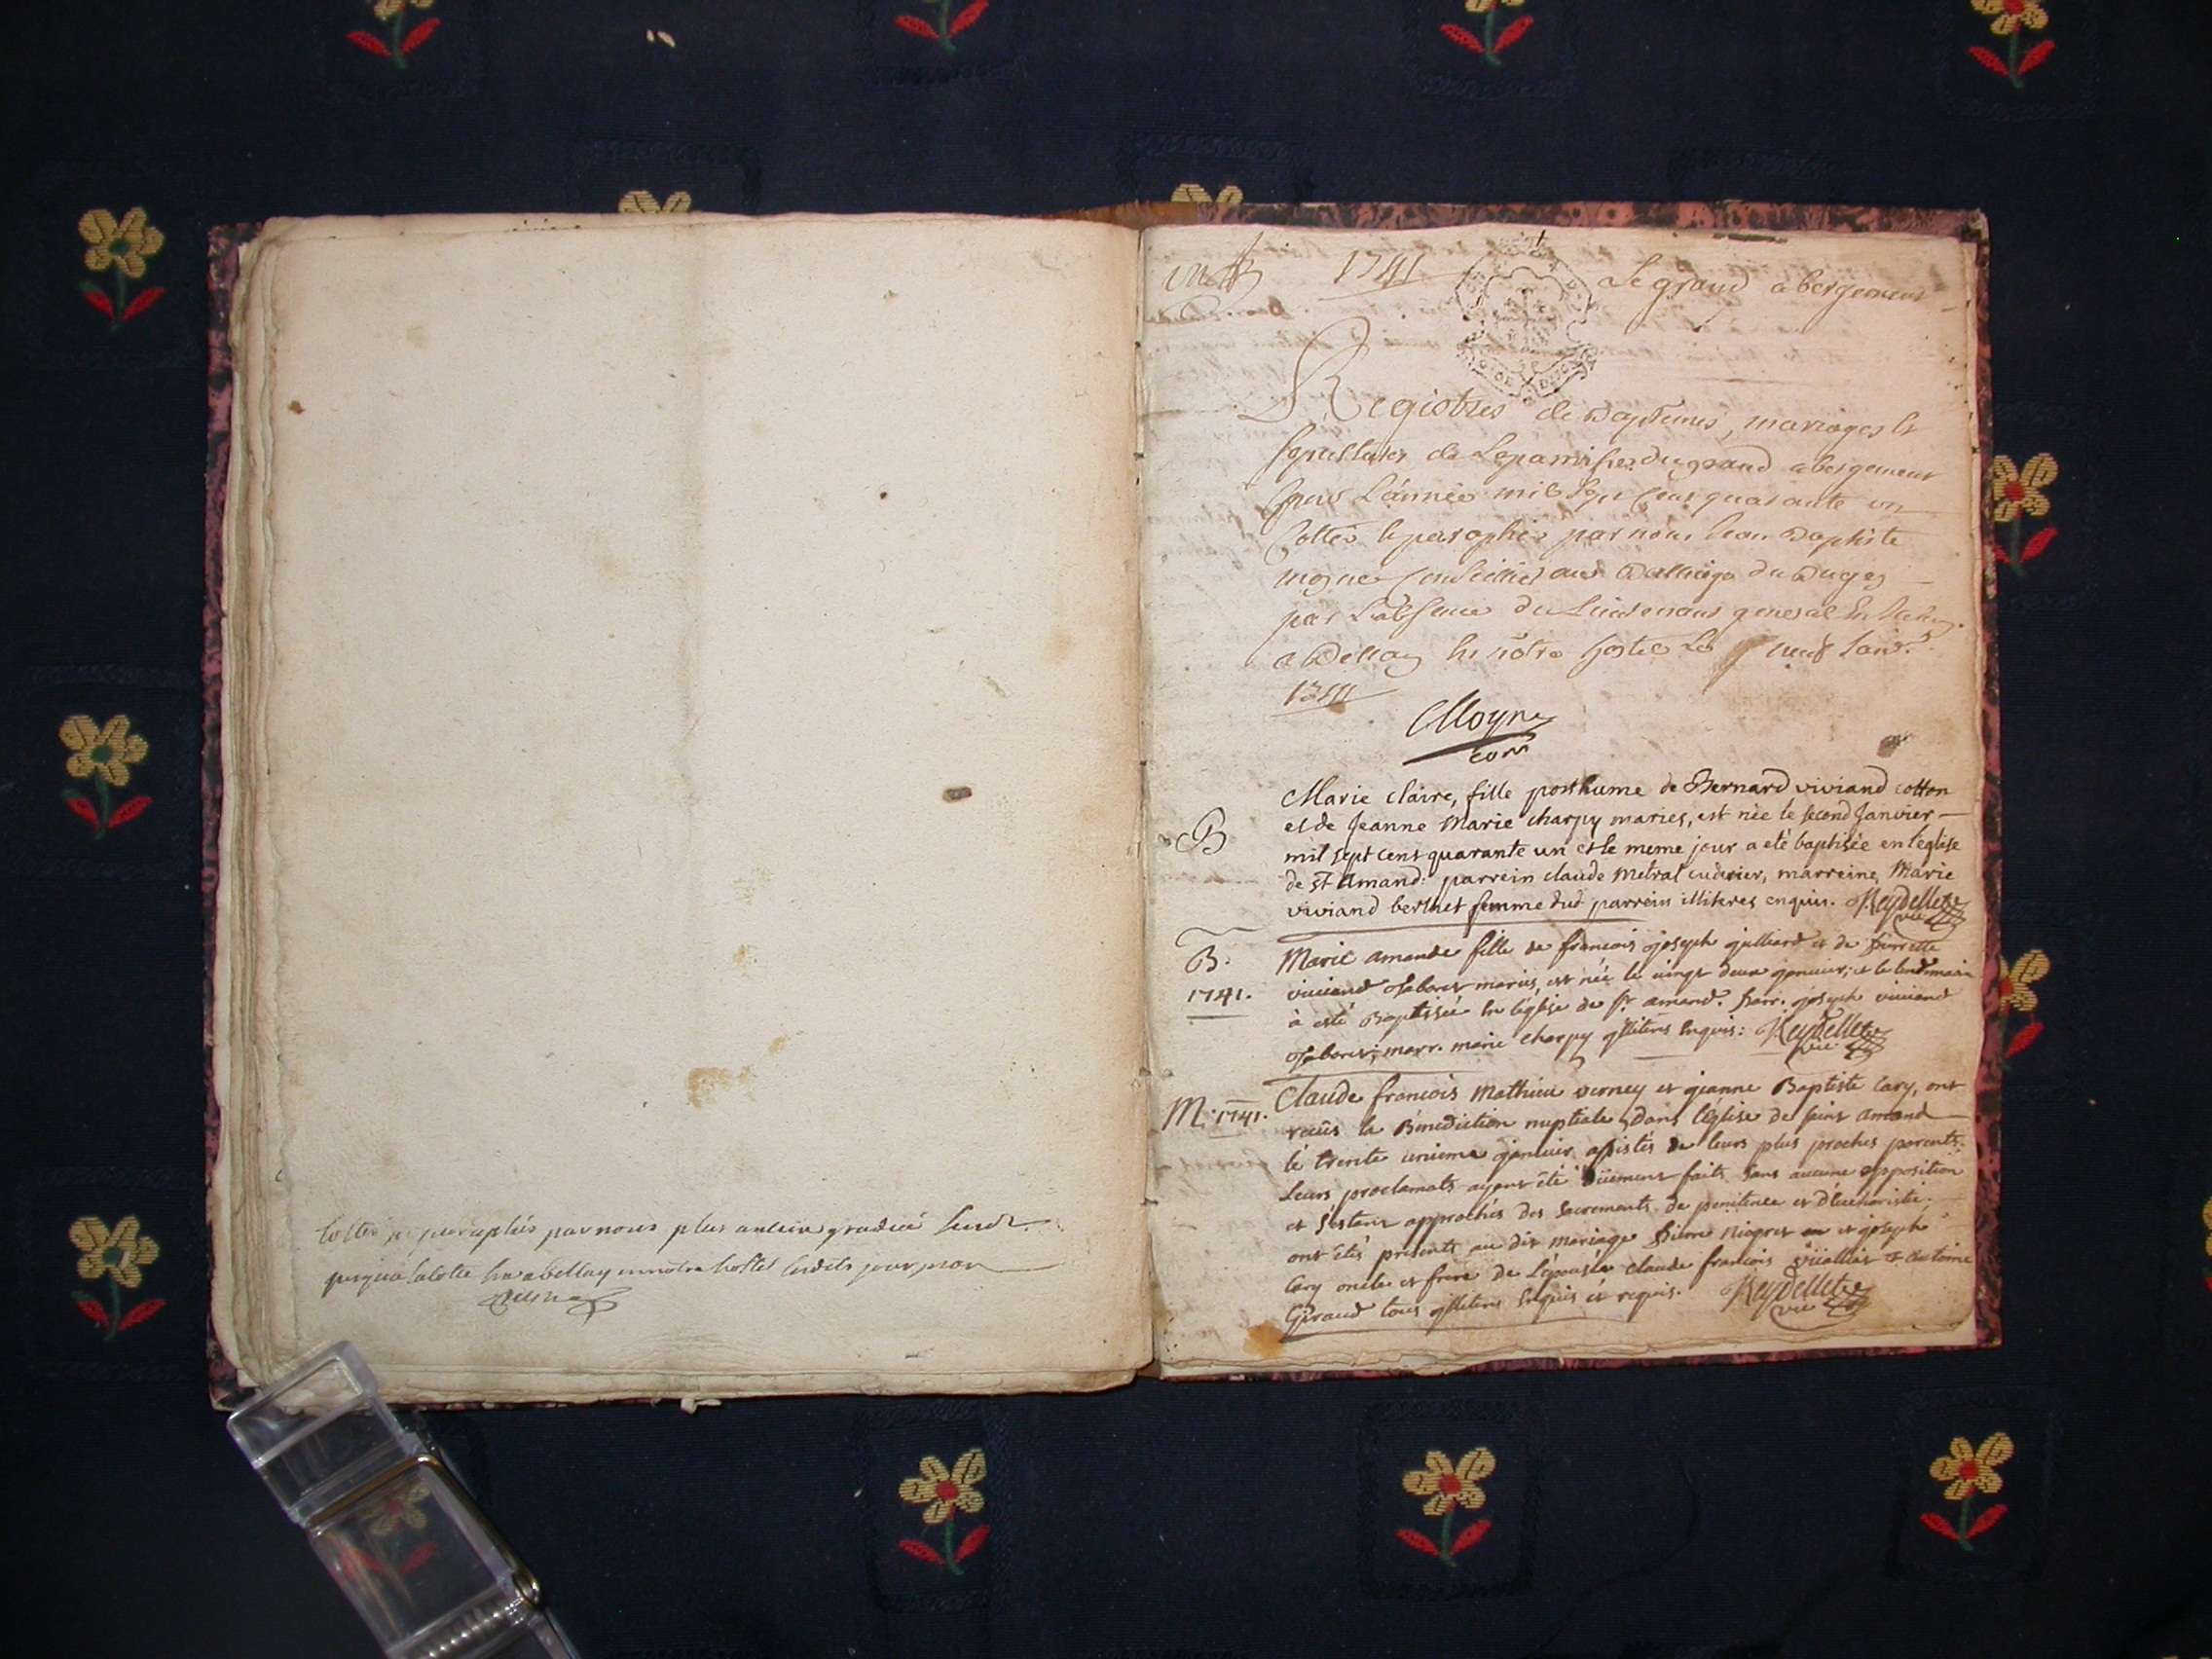 paraphés par nous plus ancien gradué
a bellay en notre hostel lesdits jour
1741
Le grand abergement
Registres de Baptemes, mariages et
sepultures de La parroisse du grand abergement
pour L'année mil sept cens quarante un
Cottés et paraphés par nous Jean Baptiste
moyne Conseillier au Balliage du Bugey
par L'absence du Lieutenant general
a Bellay en nôtre hostel Le neuf Janv.
1741
Moyne
con
B
Marie claire, fille posthume de Bernard viviand cotton
et de Jeanne Marie charpy mariés, est née le second Janvier
mil sept cens quarante un et le meme jour a eté baptisée en l'eglise
de st Amand: parrein claude Metral cuderier, marreine, Marie
viviand berthet femme dud parrein illiteres enquis. Reydellet
vic
B.
1741.
Marie amande fille de francois joseph julliard et de pierrette
viviand maries, est née le vingt deux janvier, et le lendemain
à esté Baptisée en l'église de st amand. parr. joseph viviand
marr. marie charpy illiteres enquis: Reydellet
vic
M. 1741.
Claude francois Mathieu verney et jeanne Baptiste Cary, ont
recûs la Bénediction nuptiale, dans l'église de saint amand
le trente unieme janvier assistés de leurs plus proches parents.
Leurs proclamats ayant été düement faits sans aucune opposition
et s'estant approchés des sacrements de penitence et d'eucharistie.
ont étés presents au dit mariage pierre et joseph
Cary oncle et frere de L'épousée claude francois et Antoine
Giraud tous illiteres enquis et requis. Reydellet
vic